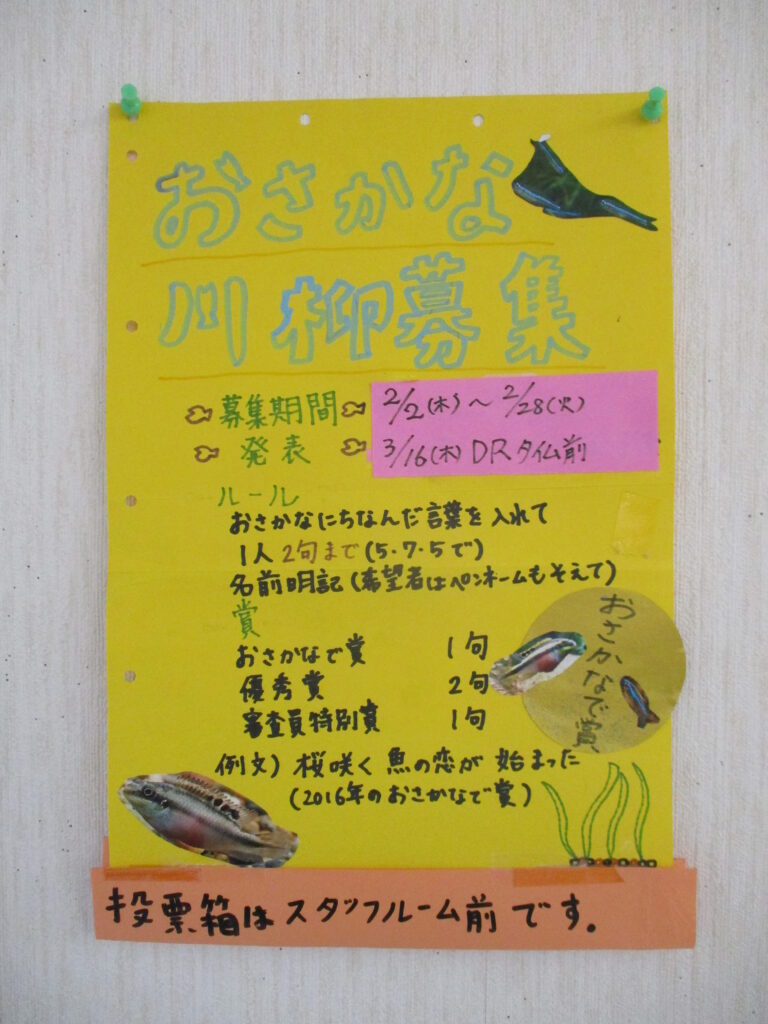 おさかな
川柳募集
募集期間 2/2(木)～2/28(火)
発表 3/16(木)DRタイム前
ルール
おさかなにちなんだ言葉を入れて
1人2句まで(5・7・5で)
名前明記(希望者はペンネームもそえて)
賞
おさかなで賞 1句
優秀賞 2句
審査員特別賞 1句
おさかなで賞
例文)桜咲く魚の恋が始まった
(2016年のおさかなで賞)
投票箱はスタッフルーム前です。